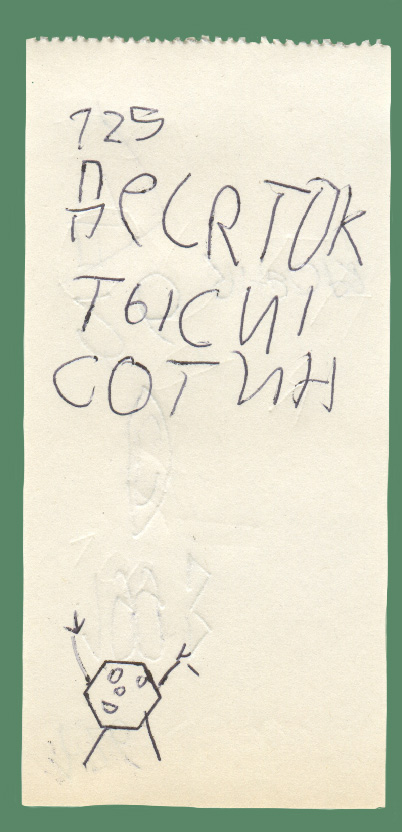 125
ДЕСЯТОК
ТЫСИІ
СОТИН